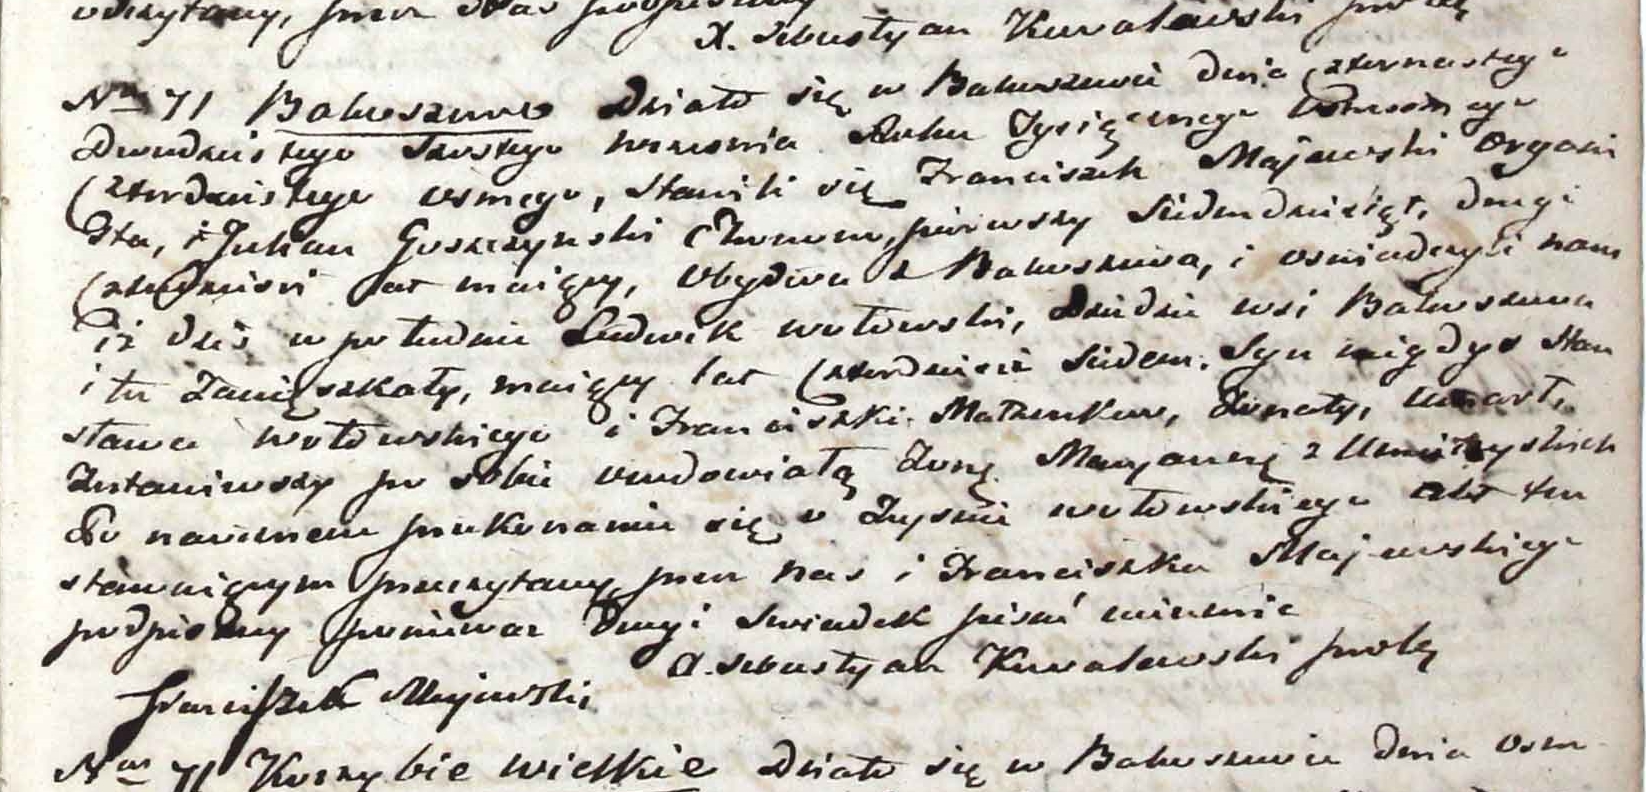 X. Sebastyan Kowalewski
Nro 71 Baboszewo Działo się w Baboszewie dnia czternastego
Dwudziestego szostego wrzesnia Roku Tysiącznego Osmsetnego
Czterdziestego osmego, Stawili się Franciszek Majewski Organi
sta, i Julian Goszczynski Ekonom, pierwszy Siedmdziesiąt, drugi
Czterdziesci lat maiący, Obydwa z Baboszewa, i oswiadczyli nam
iż dziś w południe Ludwik wołowski, Dziedzic wsi Baboszewa
i tu Zamięszkały, maiący lat Czterdziesci Siedem. Syn niegdys Stani
sława wołowskiego i Franciszki Małzonkow, Zonaty, umarł,
Zostawiwszy po sobie owdowiałą Zonę Maryannę z
Po naocznem przekonaniu się o Zejsciu wołowskiego akt ten
stawaiącym przeczytany, przez nas i Franciszka Majewskiego
podpisany poniewaz Drugi Swiadek pisać nieumie
X. Sebastyan Kowalewski
Franciszek Majewski
Nro 71 Korzybie wielkie Działo się w Baboszewie dnia osm